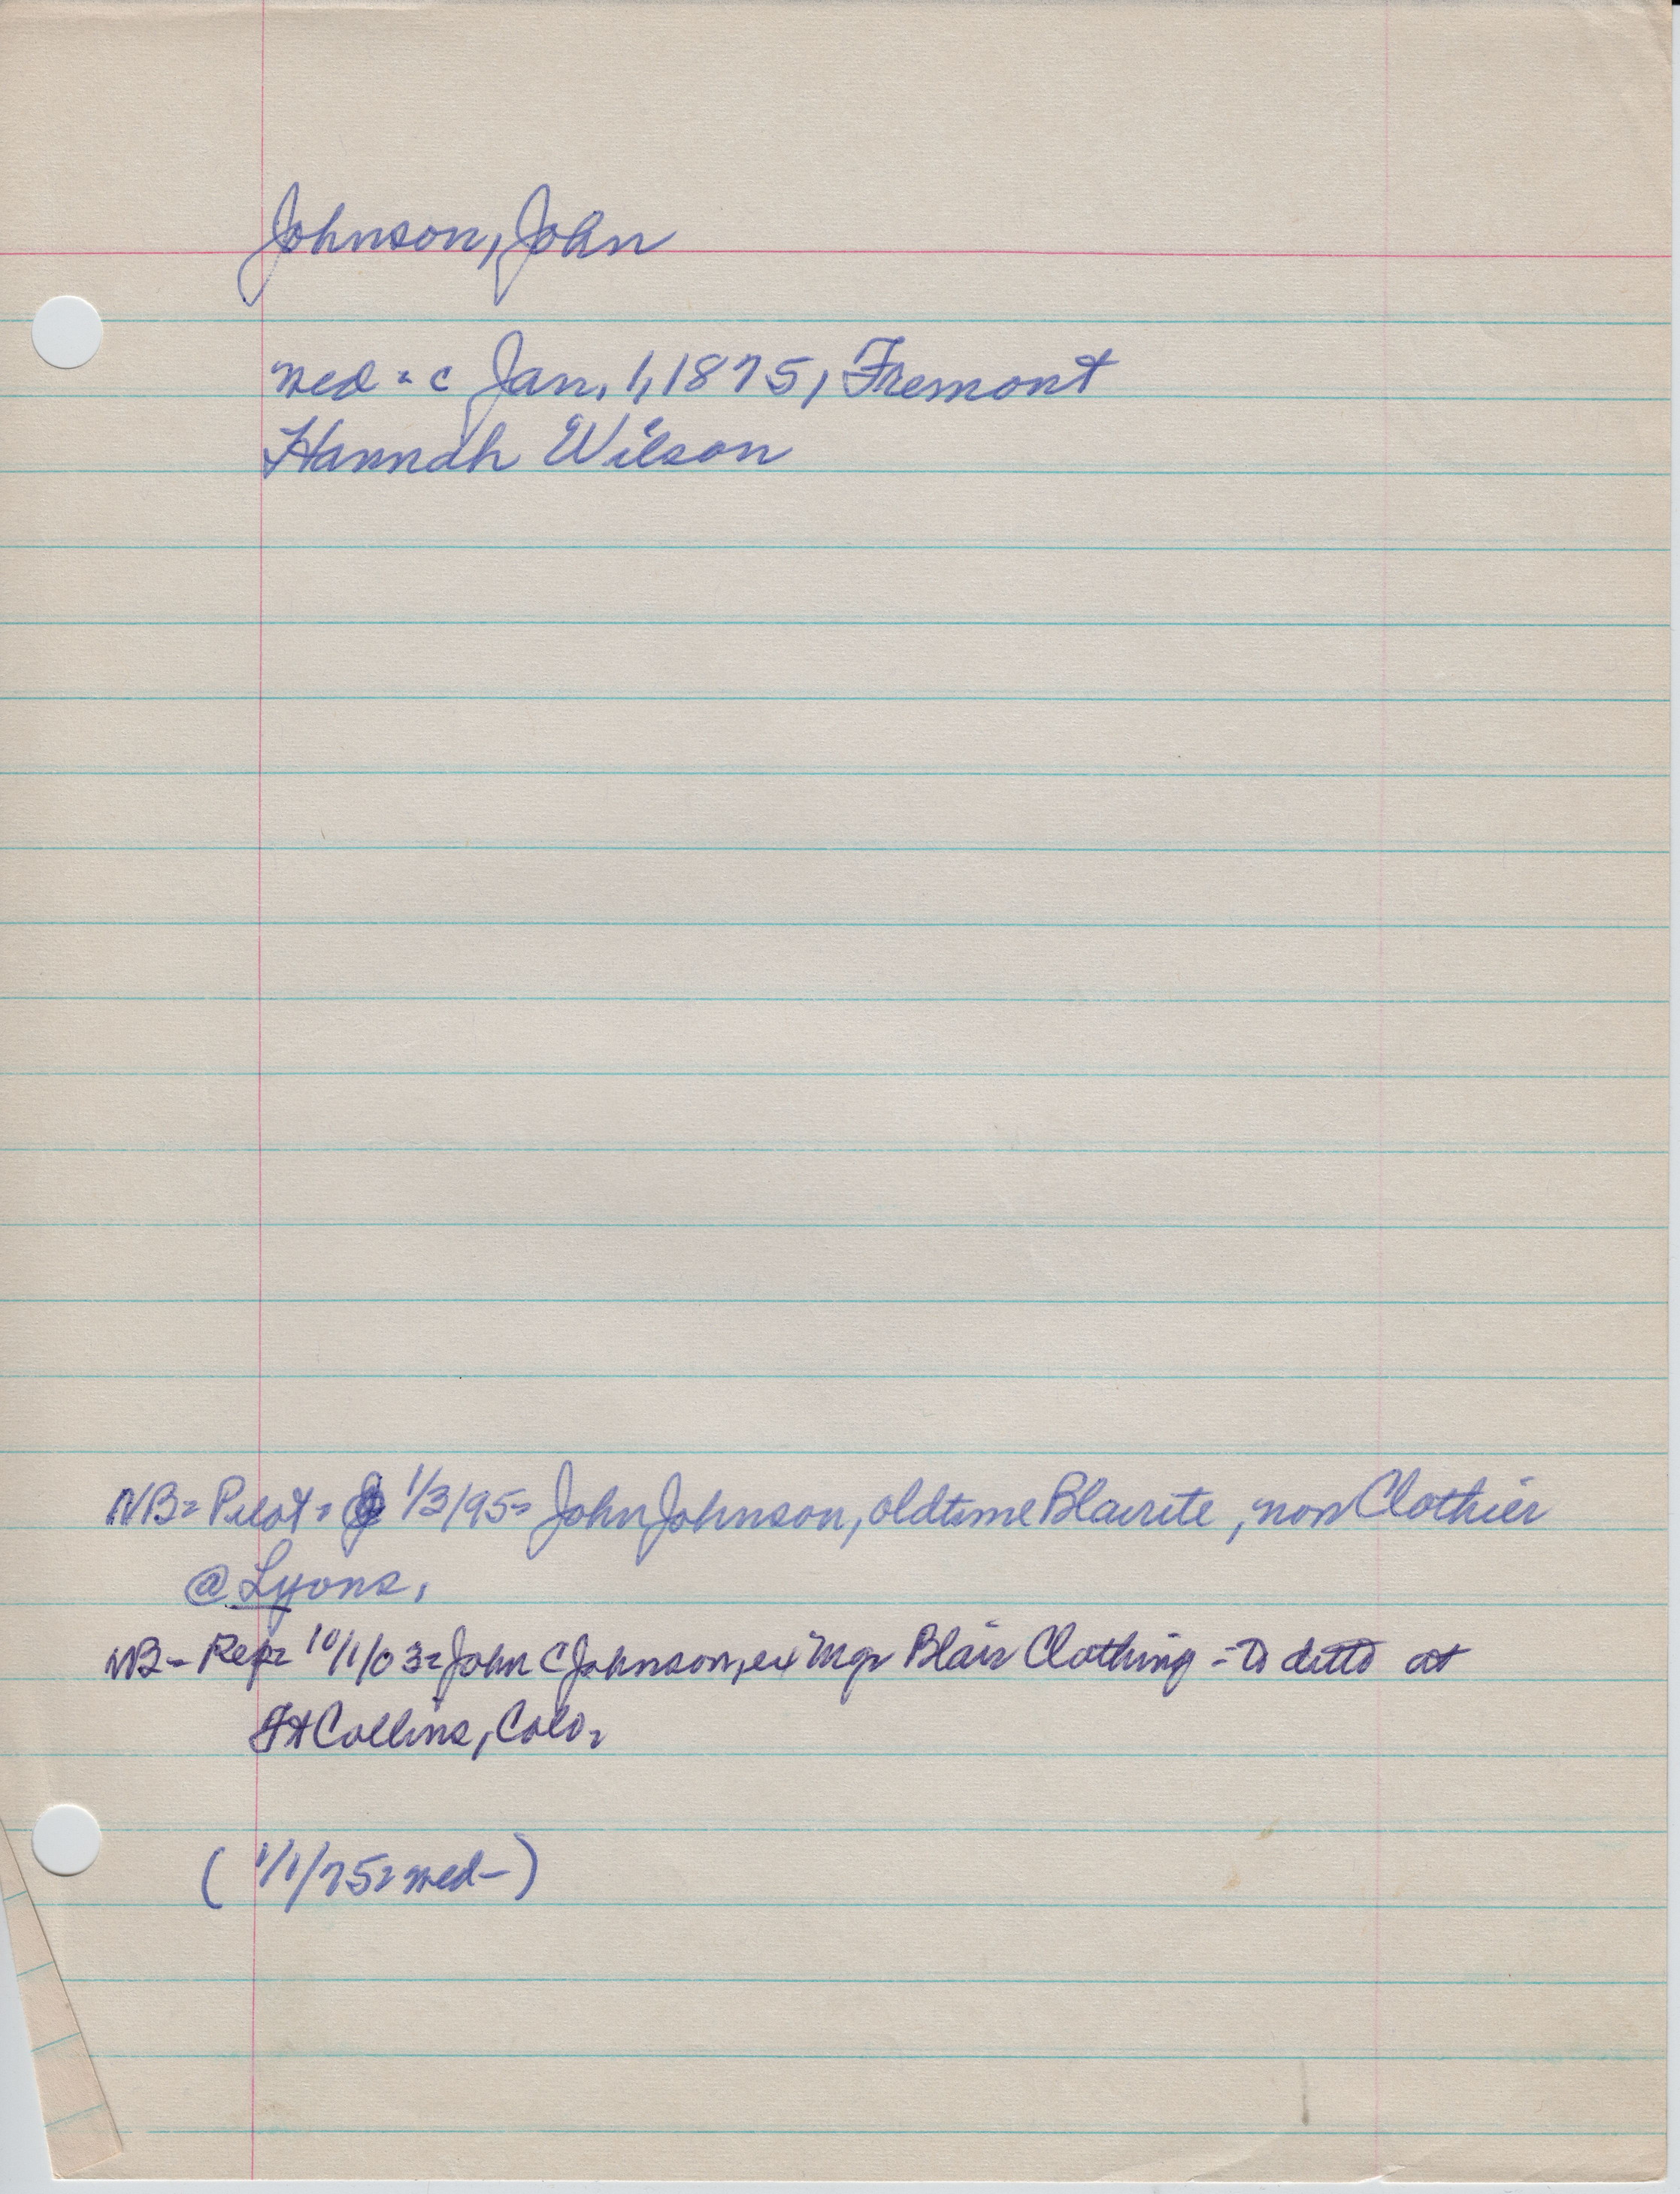 Johnson, John
med = c Jan, 1, 1875, Fremont
Hannah Wilson
NB= Pilot = 1/3/95= John Johnson, oldtime Blairite, now Clothier
@ Lyons,
NB- Rep= 10/1/03= John C Johnson, ex Mgr Blair Clothing - to ditto at
Ft Collins, Colo.
( 1/1/75= med- )